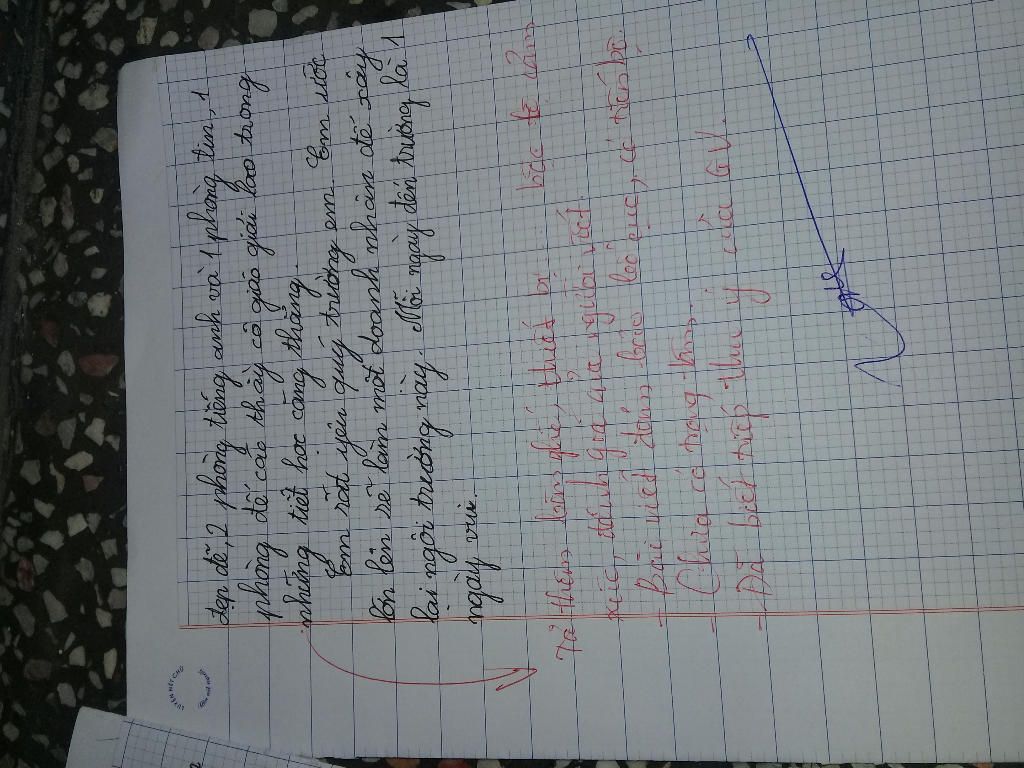 đẹp đẽ, 2 phòng tiếng anh và 1 phòng tin, 1
phòng để các thầy cô giáo giải lao trong
những tiết học căng thẳng.
Em rất yêu quý trường em. Em ước
lớn lên sẽ làm một doanh nhân để xây
lại ngôi trường này. Mỗi ngày đến trường là 1
ngày vui.
Tả thêm bàn ghế, thiết bị. bộc lộ cảm
xúc, đánh giá của người viết.
- Bài viết đảm bảo bố cục, có tiến bộ.
- Chưa có trọng tâm.
- Đã biết tiếp thu ý của GV.
LUYỆN NÉT CHỮ